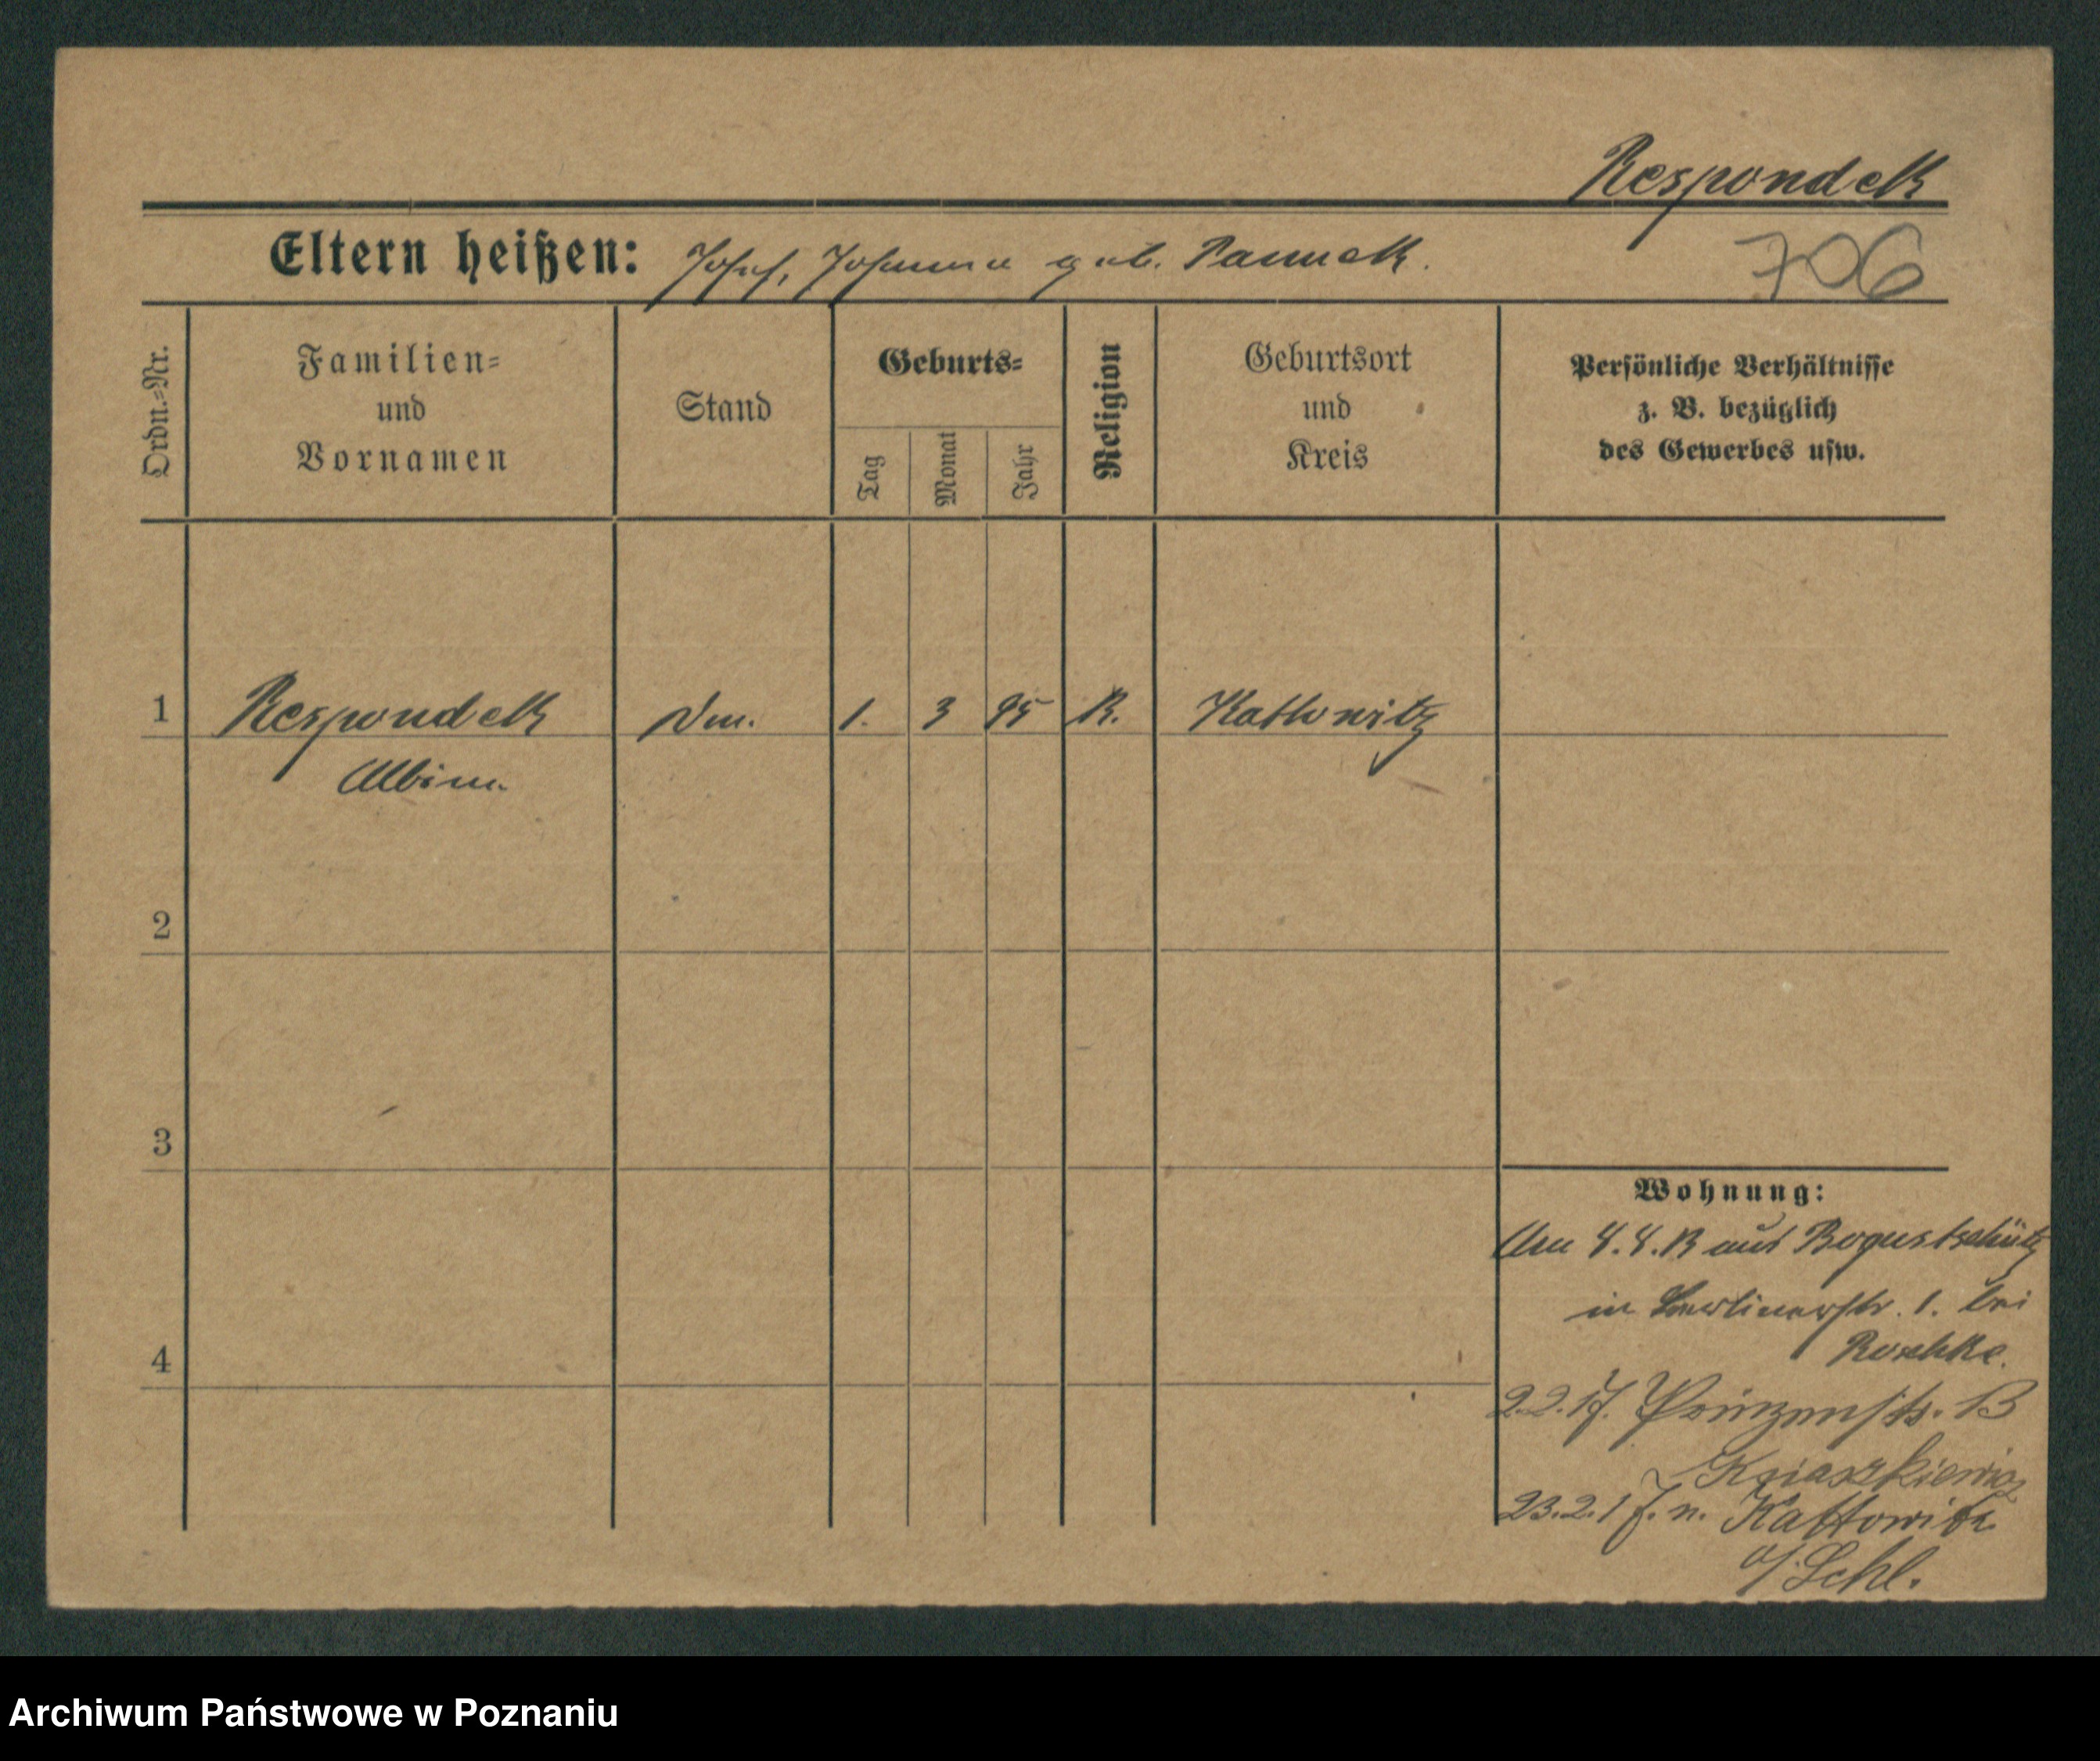 Respondek
Eltern heißen: Josef, Johanna geb. Pannek.
706
Ordn.-Nr.
Familien-
und
Vornamen
Stand
Geburts-
Tag
Monat
Jahr
Religion
Geburtsort
und
Kreis
Persönliche Verhältnisse
z. B. bezüglich
des Gewerbes usw.
1 Respondek 1. 3 95 K. Kattowitz
Albin.
2
3
4
Wohnung:
aus Bogustschütz
in Berlinerstr. 1. bei
Roschke.
2.2.17. Prinzenstr. 13
23.2.17. n. Kattowitz
o/Schl.
Archiwum Państwowe w Poznaniu